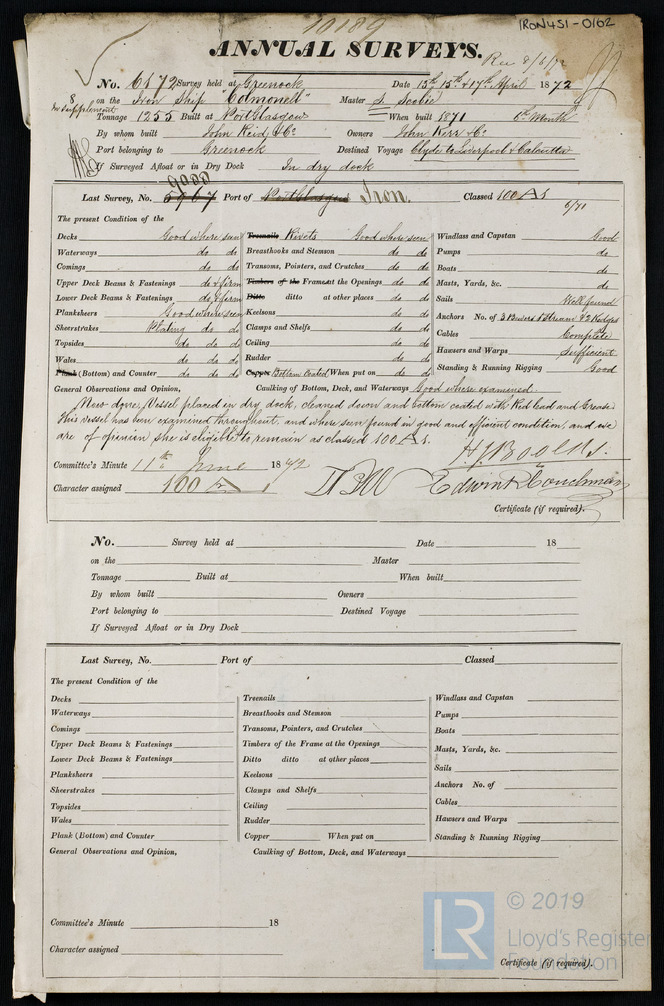 10189
IRON451-0102
ANNUAL SURVEYS.
Rec 8/6/72
No. 6172 Survey held at Greenock Date 13th, 15th & 17th April 1872
on the Iron Ship "Colmonell" Master J. Scobie
Tonnage 1255 Built at Port Glasgow When built 1871 6th Month
By whom built John Reid & Co. Owners John Kerr & Co.
Port belonging to Greenock Destined Voyage Clyde to Liverpool & Calcutta
If Surveyed Afloat or in Dry Dock In dry dock
Last Survey, No. 5967 Port of Port Glasgow Iron. Classed 100 A 1
6/71
The present Condition of the
Decks Good where seen
Waterways do do
Comings do do
Upper Deck Beams & Fastenings do & firm
Lower Deck Beams & Fastenings do & firm
Planksheers Good where seen
Sheerstrakes Plating do do
Topsides do do do
Wales do do
Plank (Bottom) and Counter do do
Treenails Rivets Good where seen
Breasthooks and Stemson do do
Transoms, Pointers, and Crutches do do
Timbers of the Frame at the Openings do do
Ditto ditto at other places do do
Keelsons do do
Clamps and Shelfs do do
Ceiling do do
Rudder do do
Copper Bottom Coated When put on do do
Windlass and Capstan Good
Pumps do
Boats do
Masts, Yards, &c. do
Sails Well found
Anchors No. of 3 Bowers 1 Stream & 2 Kedges
Cables Complete
Hawsers and Warps Sufficient
Standing & Running Rigging Good
General Observations and Opinion, Caulking of Bottom, Deck, and Waterways Good where examined.
Now done, Vessel placed in dry dock, cleaned down and bottom coated with Red lead and Grease.
This vessel has been examined throughout, and where seen found in good and efficient condition, and we
are of opinion she is eligible to remain as classed 100 A 1.
Committee's Minute 11th June 1872
Character assigned 100 A
Edwin R Couchman
Certificate (if required).
No. Survey held at Date 18
on the Master
Tonnage Built at When built
By whom built Owners
Port belonging to Destined Voyage
If Surveyed Afloat or in Dry Dock
Last Survey, No. Port of Classed
The present Condition of the
Decks
Waterways
Comings
Upper Deck Beams & Fastenings
Lower Deck Beams & Fastenings
Planksheers
Sheerstrakes
Topsides
Wales
Plank (Bottom) and Counter
Treenails
Breasthooks and Stemson
Transoms, Pointers, and Crutches
Timbers of the Frame at the Openings
Ditto ditto at other places
Keelsons
Clamps and Shelfs
Ceiling
Rudder
Copper When put on
Windlass and Capstan
Pumps
Boats
Masts, Yards, &c.
Sails
Anchors No. of
Cables
Hawsers and Warps
Standing & Running Rigging
General Observations and Opinion, Caulking of Bottom, Deck, and Waterways
Committee's Minute 18
Character assigned
Certificate (if required).
LR
© 2019
Lloyd's Register
Foundation